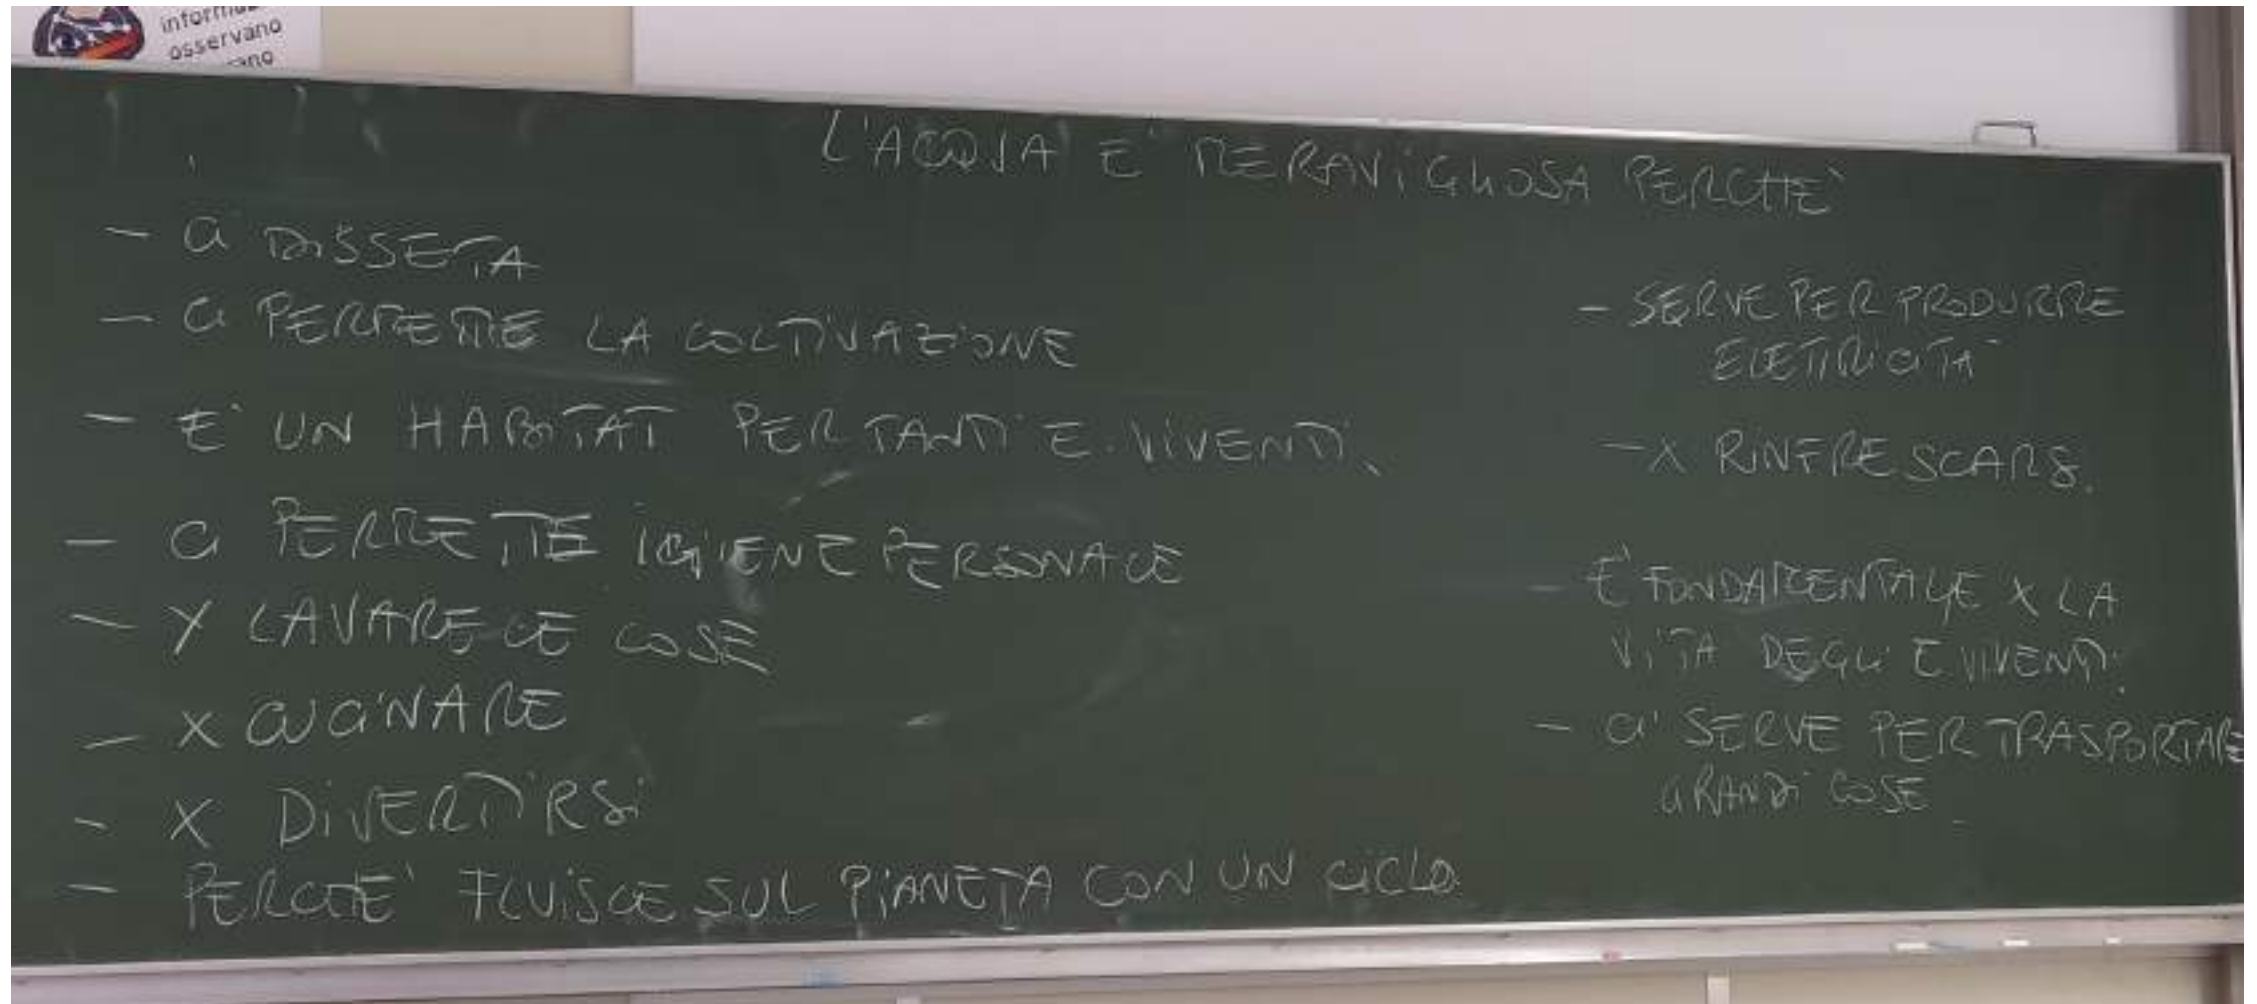 osservano
L'ACQUA E' MERAVIGLIOSA PERCHE'
- CI DISSETA
- CI PERMETTE LA COLTIVAZIONE
- E' UN HABITAT PER TANTI E. VIVENTI.
- CI PERMETTE IGIENE PERSONALE
- X LAVARE LE COSE
- X CUCINARE
- X DIVERTIRSI
- PERCHE' FLUISCE SUL PIANETA CON UN CICLO
- SERVE PER PRODURRE
ELETTRICITA'
- X RINFRESCARSI.
- E' FONDAMENTALE X LA
VITA DEGLI E VIVENTI.
- CI SERVE PER TRASPORTARE
GRANDI COSE